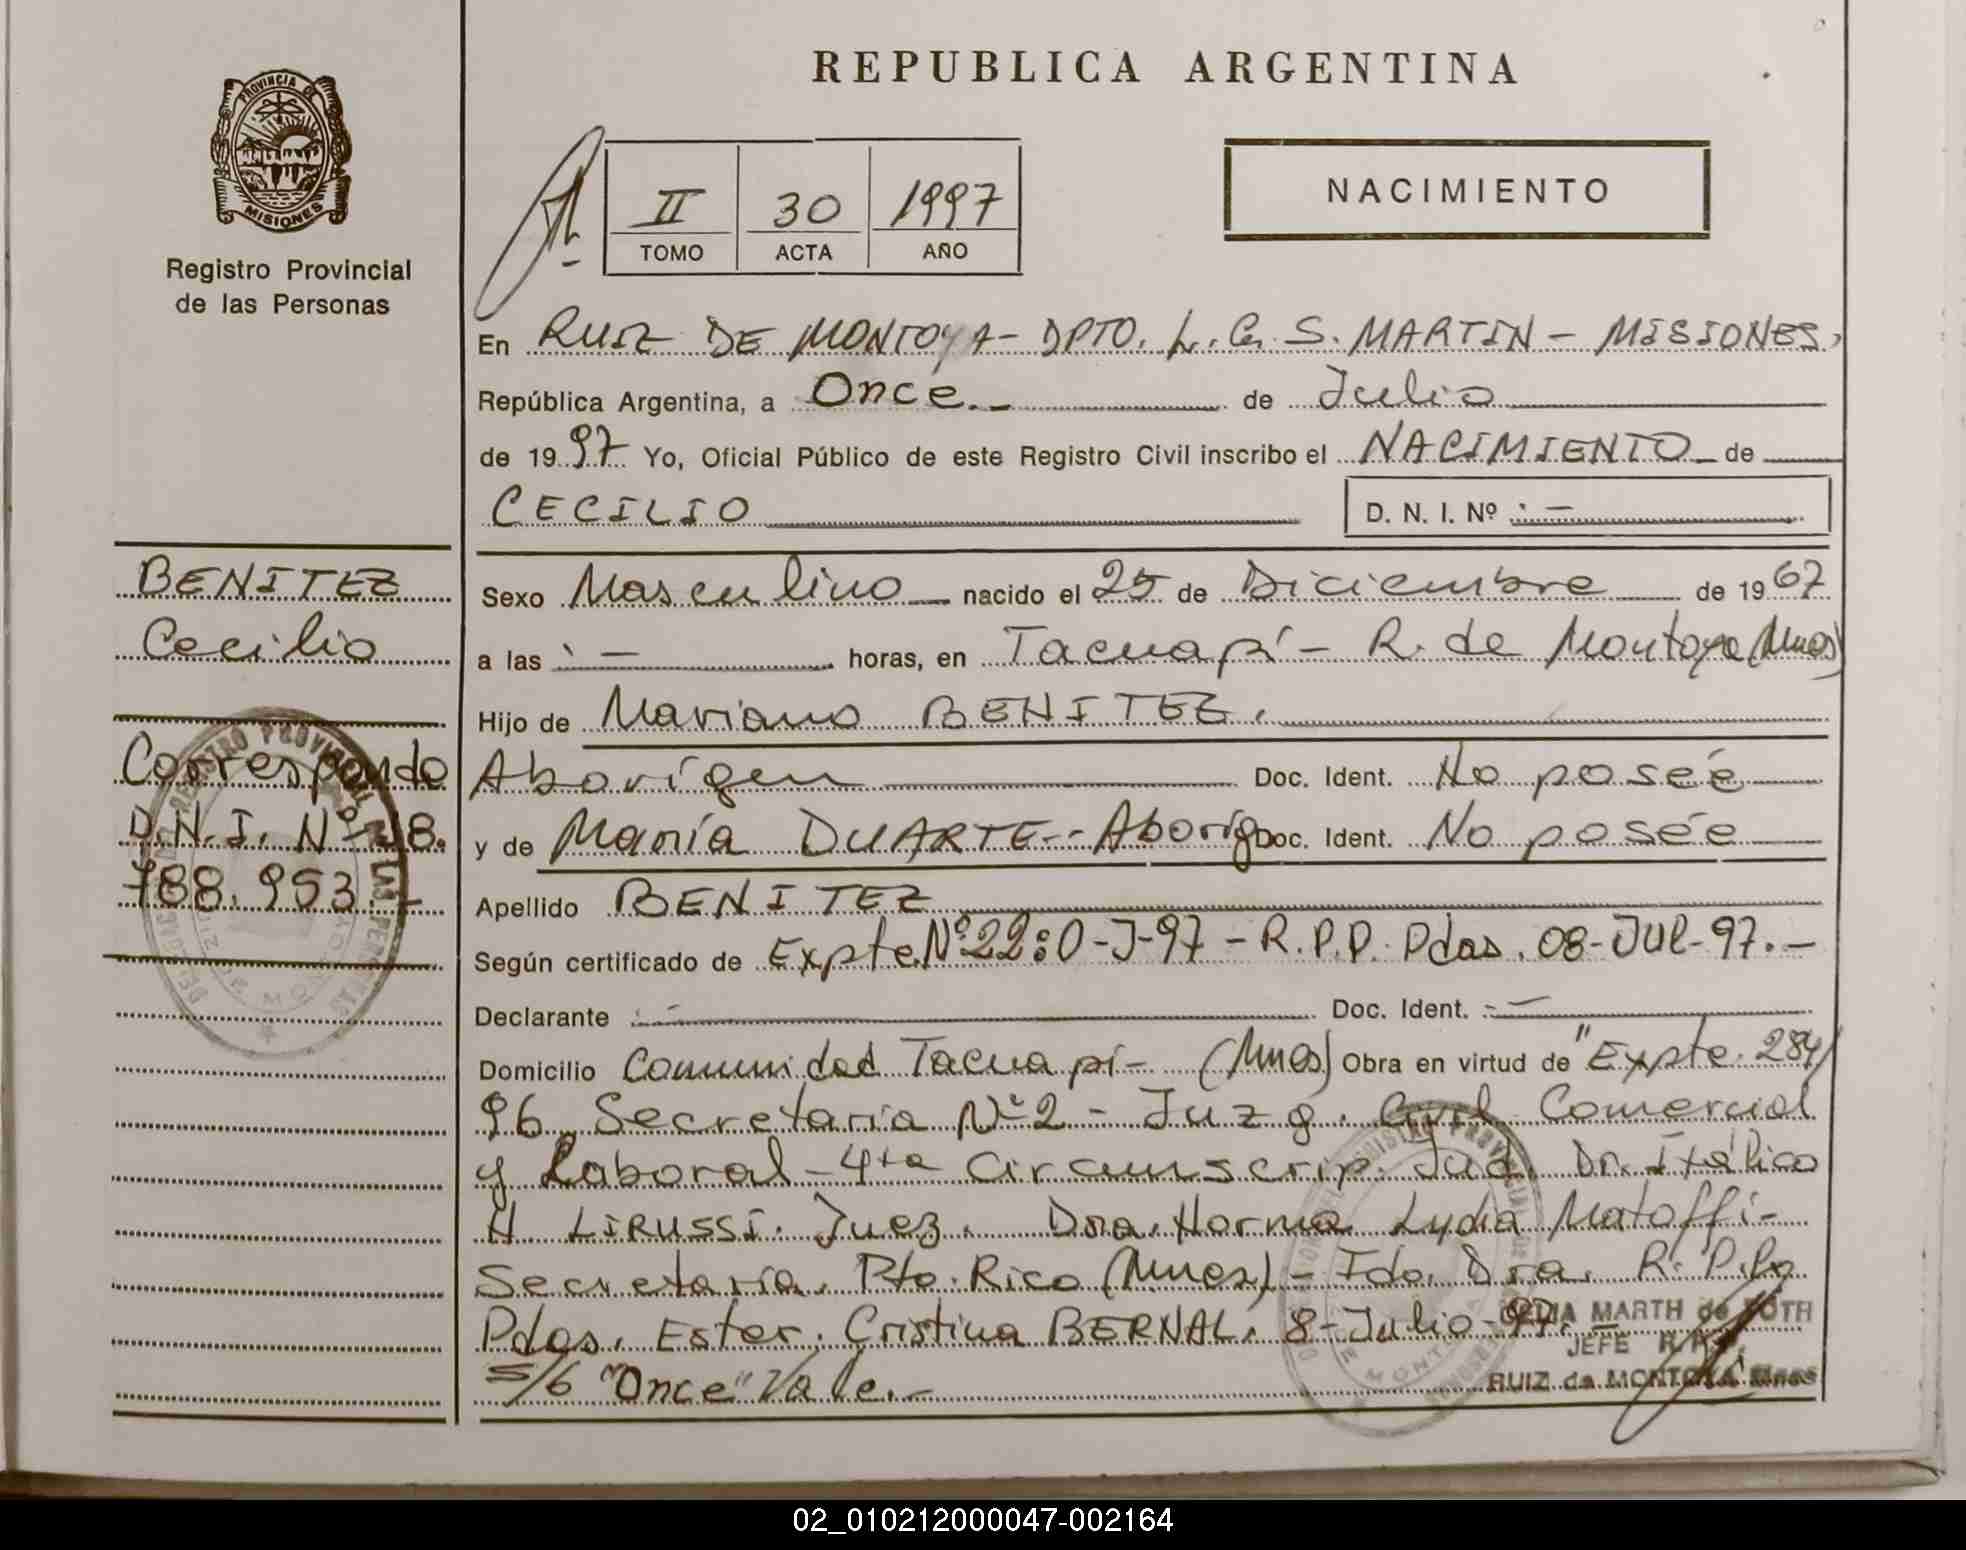 PROVINCIA DE
MISIONES
Registro Provincial
de las Personas
REPUBLICA ARGENTINA
II 30 1997
TOMO ACTA AÑO
NACIMIENTO
En RUIZ DE MONTOYA - DPTO. L. G. S. MARTIN - MISIONES,
República Argentina, a Once.- de Julio
de 1997 Yo, Oficial Público de este Registro Civil inscribo el NACIMIENTO de
CECILIO D. N. I. Nº :-
Sexo Masculino nacido el 25 de Diciembre de 1967
a las :- horas, en Tacuapí - R. de Montoya (Mnes)
Hijo de Mariano BENITEZ.
Aborígen Doc. Ident. No posée
y de María DUARTE-- Aboríg Doc. Ident. No posée
Apellido BENITEZ
Según certificado de Expte. Nº 22:0-J-97 - R.P.P. Pdas. 08-JUL-97.-
Declarante :- Doc. Ident. :-
Domicilio Comunidad Tacuapí- (Mnes) Obra en virtud de "Expte. 284/
96 Secretaría Nº 2 - Juzg. Civil Comercial
y Laboral - 4ta Circunscrip. Jud. Dr. Itálico
H LIRUSSI. Juez. Dra. Norma Lydia Matoffi-
Secretaría. Pto. Rico (Mnes) - Fdo. Dra. R.P.P.
Pdas. Ester. Cristina BERNAL. 8-Julio-97.-
S/6 "Once" Vale.-
MARTH de
JEFE
RUIZ de MONTOYA Mnes
BENITEZ
Cecilio
Corresponde
D.N.I. Nº 18.
788.953.-
02_010212000047-002164